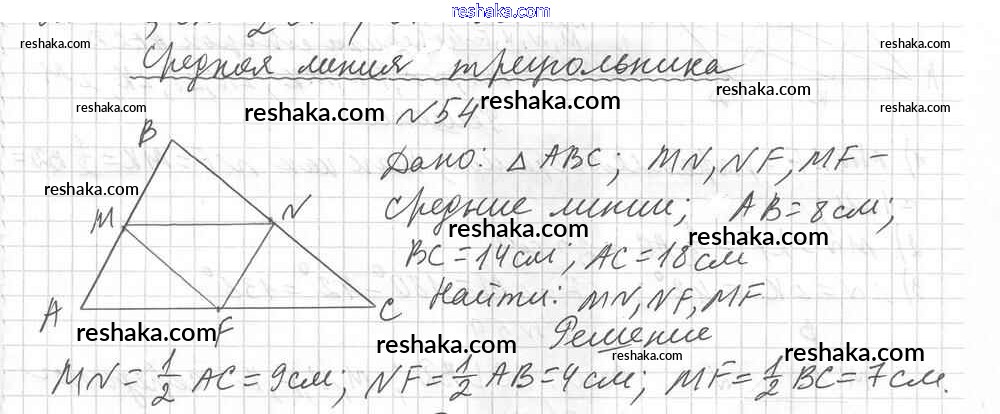 reshaka.com
reshaka.com reshaka.com
Средняя линия треугольника
reshaka.com reshaka.com reshaka.com reshaka.com
№54
B
Дано: △ ABC; MN, NF, MF –
reshaka.com reshaka.com
M N средние линии; AB = 8 см;
reshaka.com reshaka.com
BC = 14 см; AC = 18 см
Найти: MN, NF, MF
A F C
reshaka.com Решение
reshaka.com reshaka.com reshaka.com
MN = 1/2 AC = 9 см; NF = 1/2 AB = 4 см; MF = 1/2 BC = 7 см.
reshaka.com reshaka.com